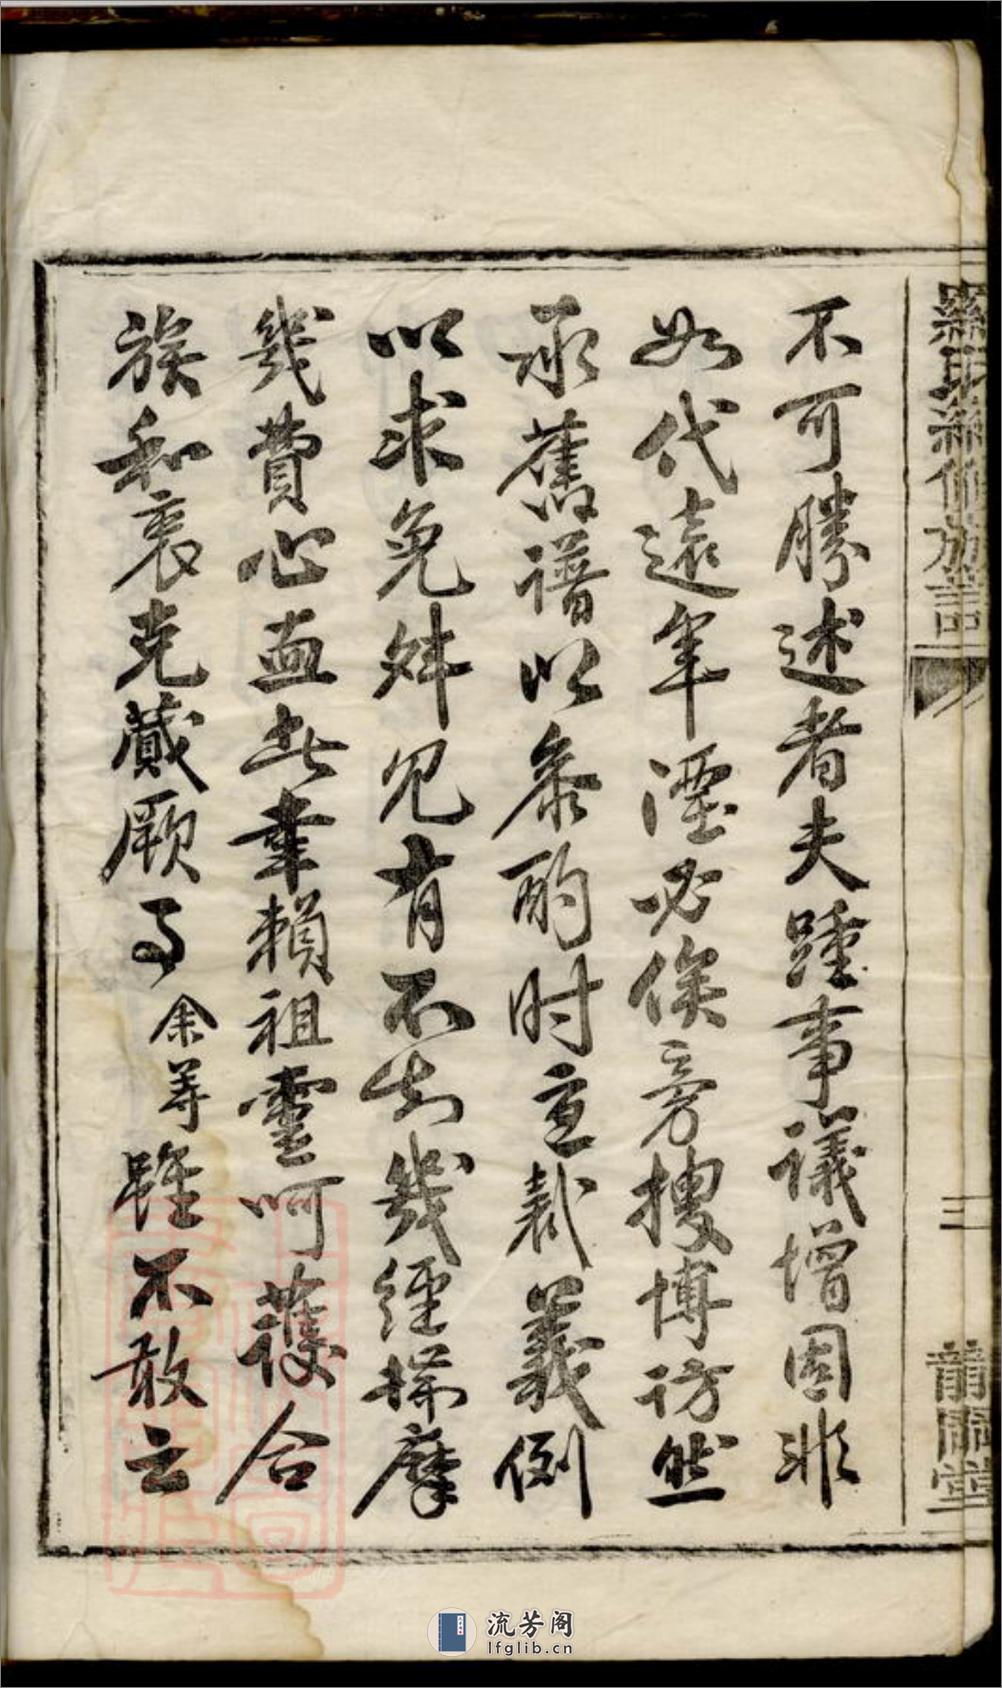 羅氏修族譜
三
堂
不可勝述者夫踵事議增固非
如代遠年湮必俟旁搜博訪然
承舊譜以叅酌时宜裁義例
以求免舛有不知幾經揣摩
幾費心血此幸賴祖靈呵護合
族和衷克蕆厥事余等雖不敢云
流芳阁
lfglib.cn